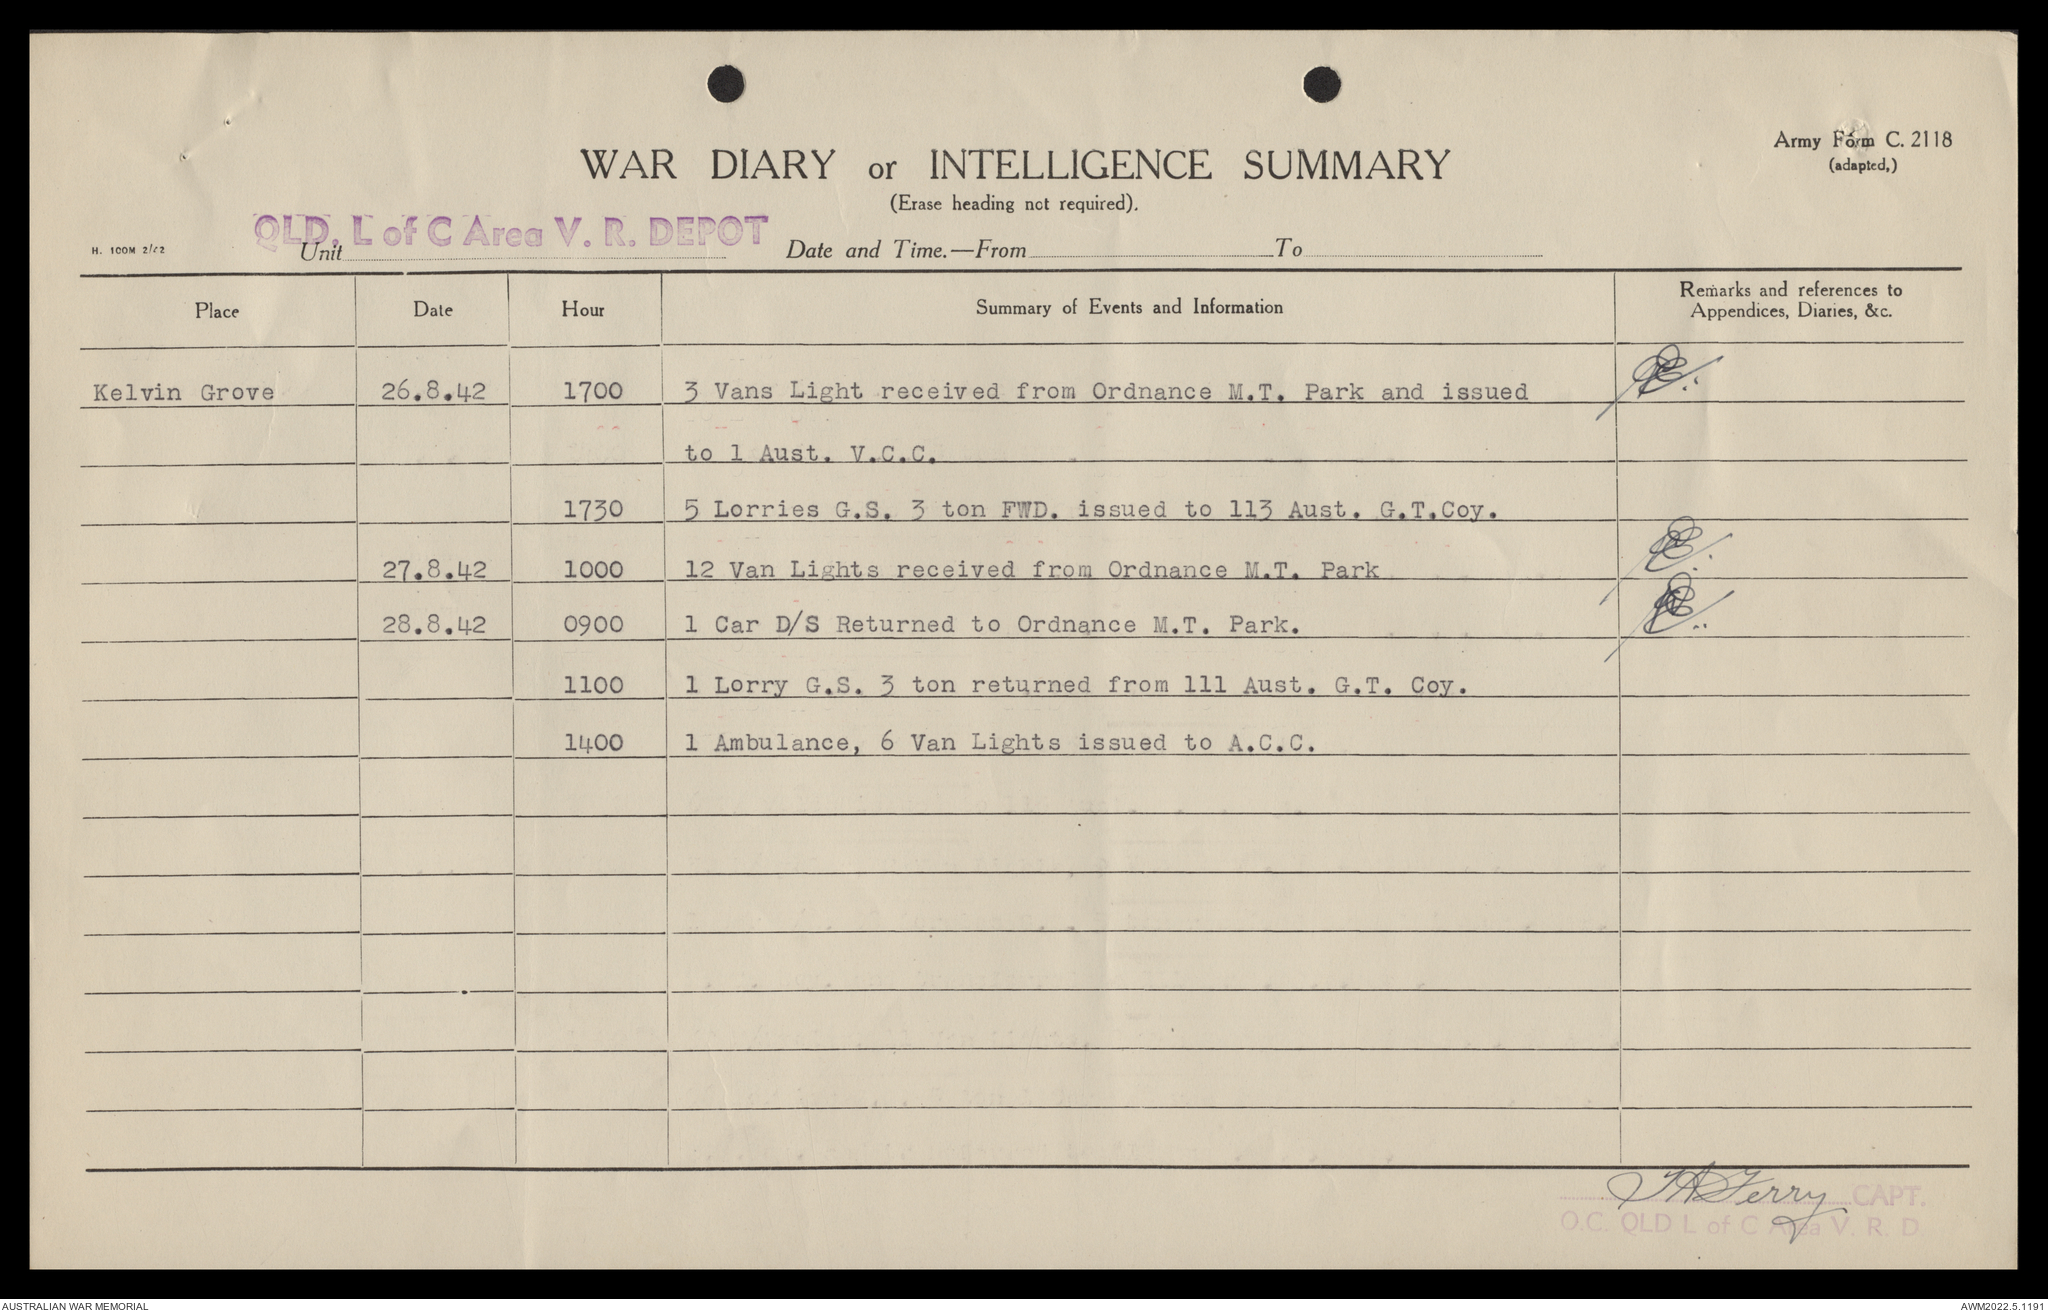 Army Form C. 2118
(adapted,)
WAR DIARY or INTELLIGENCE SUMMARY
(Erase heading not required).
H. 100M 2/42
QLD. L of C Area V. R. DEPOT
Unit Date and Time.—From To
Place Date Hour Summary of Events and Information Remarks and references to
Appendices, Diaries, &c.
Kelvin Grove 26.8.42 1700 3 Vans Light received from Ordnance M.T. Park and issued
to 1 Aust. V.C.C.
1730 5 Lorries G.S. 3 ton FWD. issued to 113 Aust. G.T.Coy.
27.8.42 1000 12 Van Lights received from Ordnance M.T. Park
28.8.42 0900 1 Car D/S Returned to Ordnance M.T. Park.
1100 1 Lorry G.S. 3 ton returned from 111 Aust. G.T. Coy.
1400 1 Ambulance, 6 Van Lights issued to A.C.C.
Ferry CAPT.
O.C. QLD L of C Area V. R. D.
AUSTRALIAN WAR MEMORIAL AWM2022.5.1191